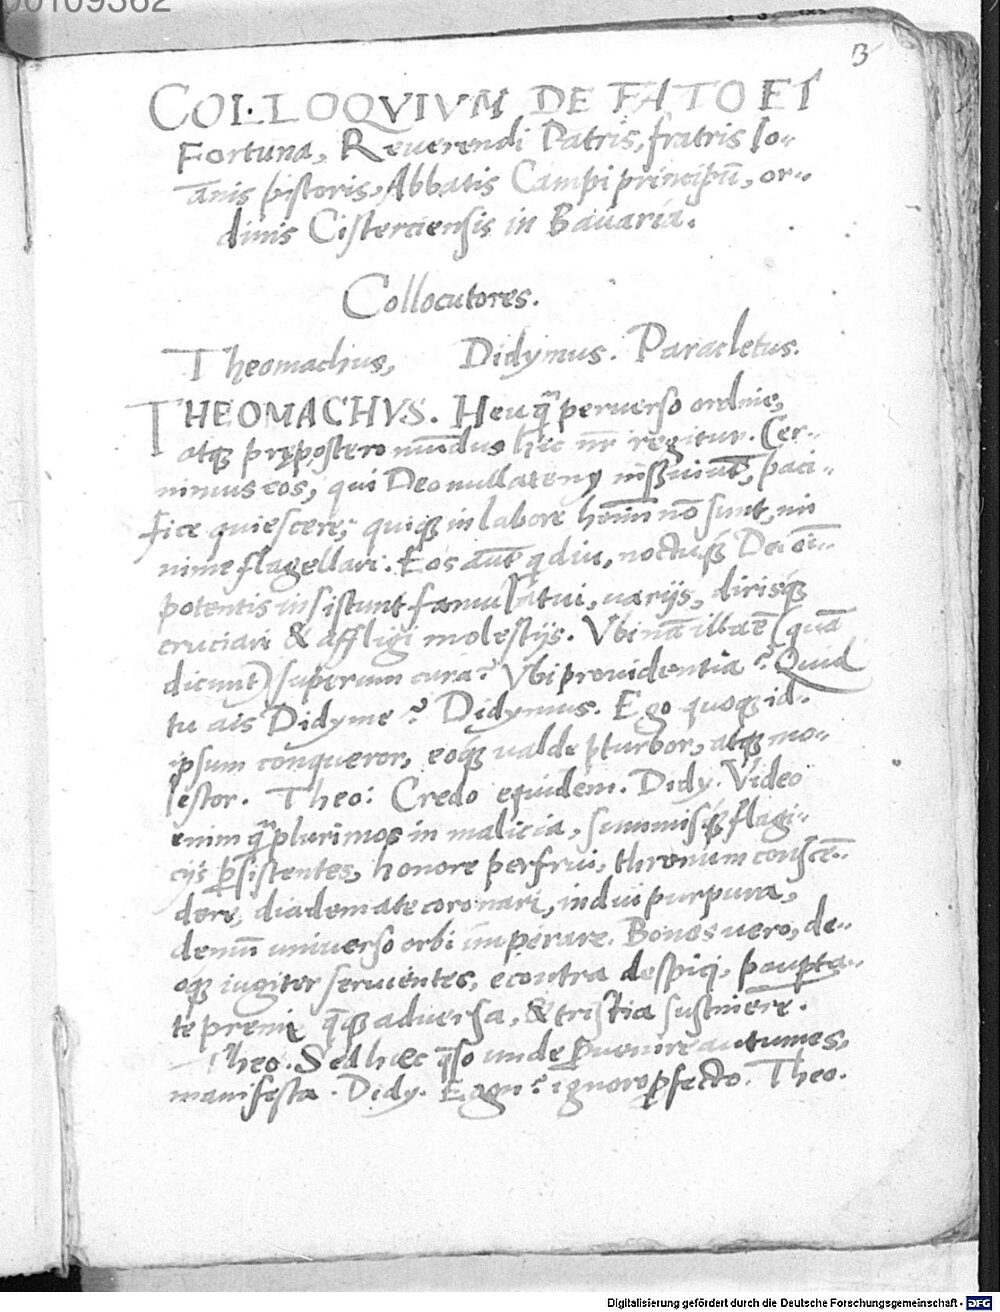 00109362
13
COLLOQVIVM DE FATO ET
Fortuna, Reuerendi Patris, fratris Io-
ānis pistoris, Abbatis Campi principū, or-
dinis Cisterciensis in Bauaria.
Collocutores.
Theomachus, Didymus. Paracletus.
THEOMACHVS. Heu q̃ peruerso ordine,
atq; prępostero mūdus hic nr̄ regitur. Cer-
nimus eos, qui Deo nullatenꝰ inseruiūt, paci-
fice quiescere; quiq; in labore hoīm nō sunt, mi
nime flagellari. Eos aūt q diu, noctuq; Dei oī-
potentis insistunt famulatui, varijs, dirisq;
cruciari & affligi molestijs. Vbinā illa ē (quā
dicunt) superum cura? Vbi prouidentia? Quid
tu ais Didyme? Didymus. Ego quoq; id-
ipsum conqueror, eoq; valde ꝑturbor, atq; mo-
lestor. Theo: Credo equidem. Didy. Video
enim q̃plurimos in malicia, summisq; flagi-
cijs ꝑsistentes, honore perfrui, thronum conscē-
dere, diademate coronari, indui purpura,
demū uniuerso orbi imperare. Bonos vero, de-
oq; iugiter seruientes, econtra despici, paupta-
te premi, q̃q; aduersa, & tristia sustinere.
Theo. Sed hæc q̄so unde ꝑuenire autumes,
manifesta. Didy. Egōn? ignoro ꝓfecto. Theo.
Digitalisierung gefördert durch die Deutsche Forschungsgemeinschaft - DFG